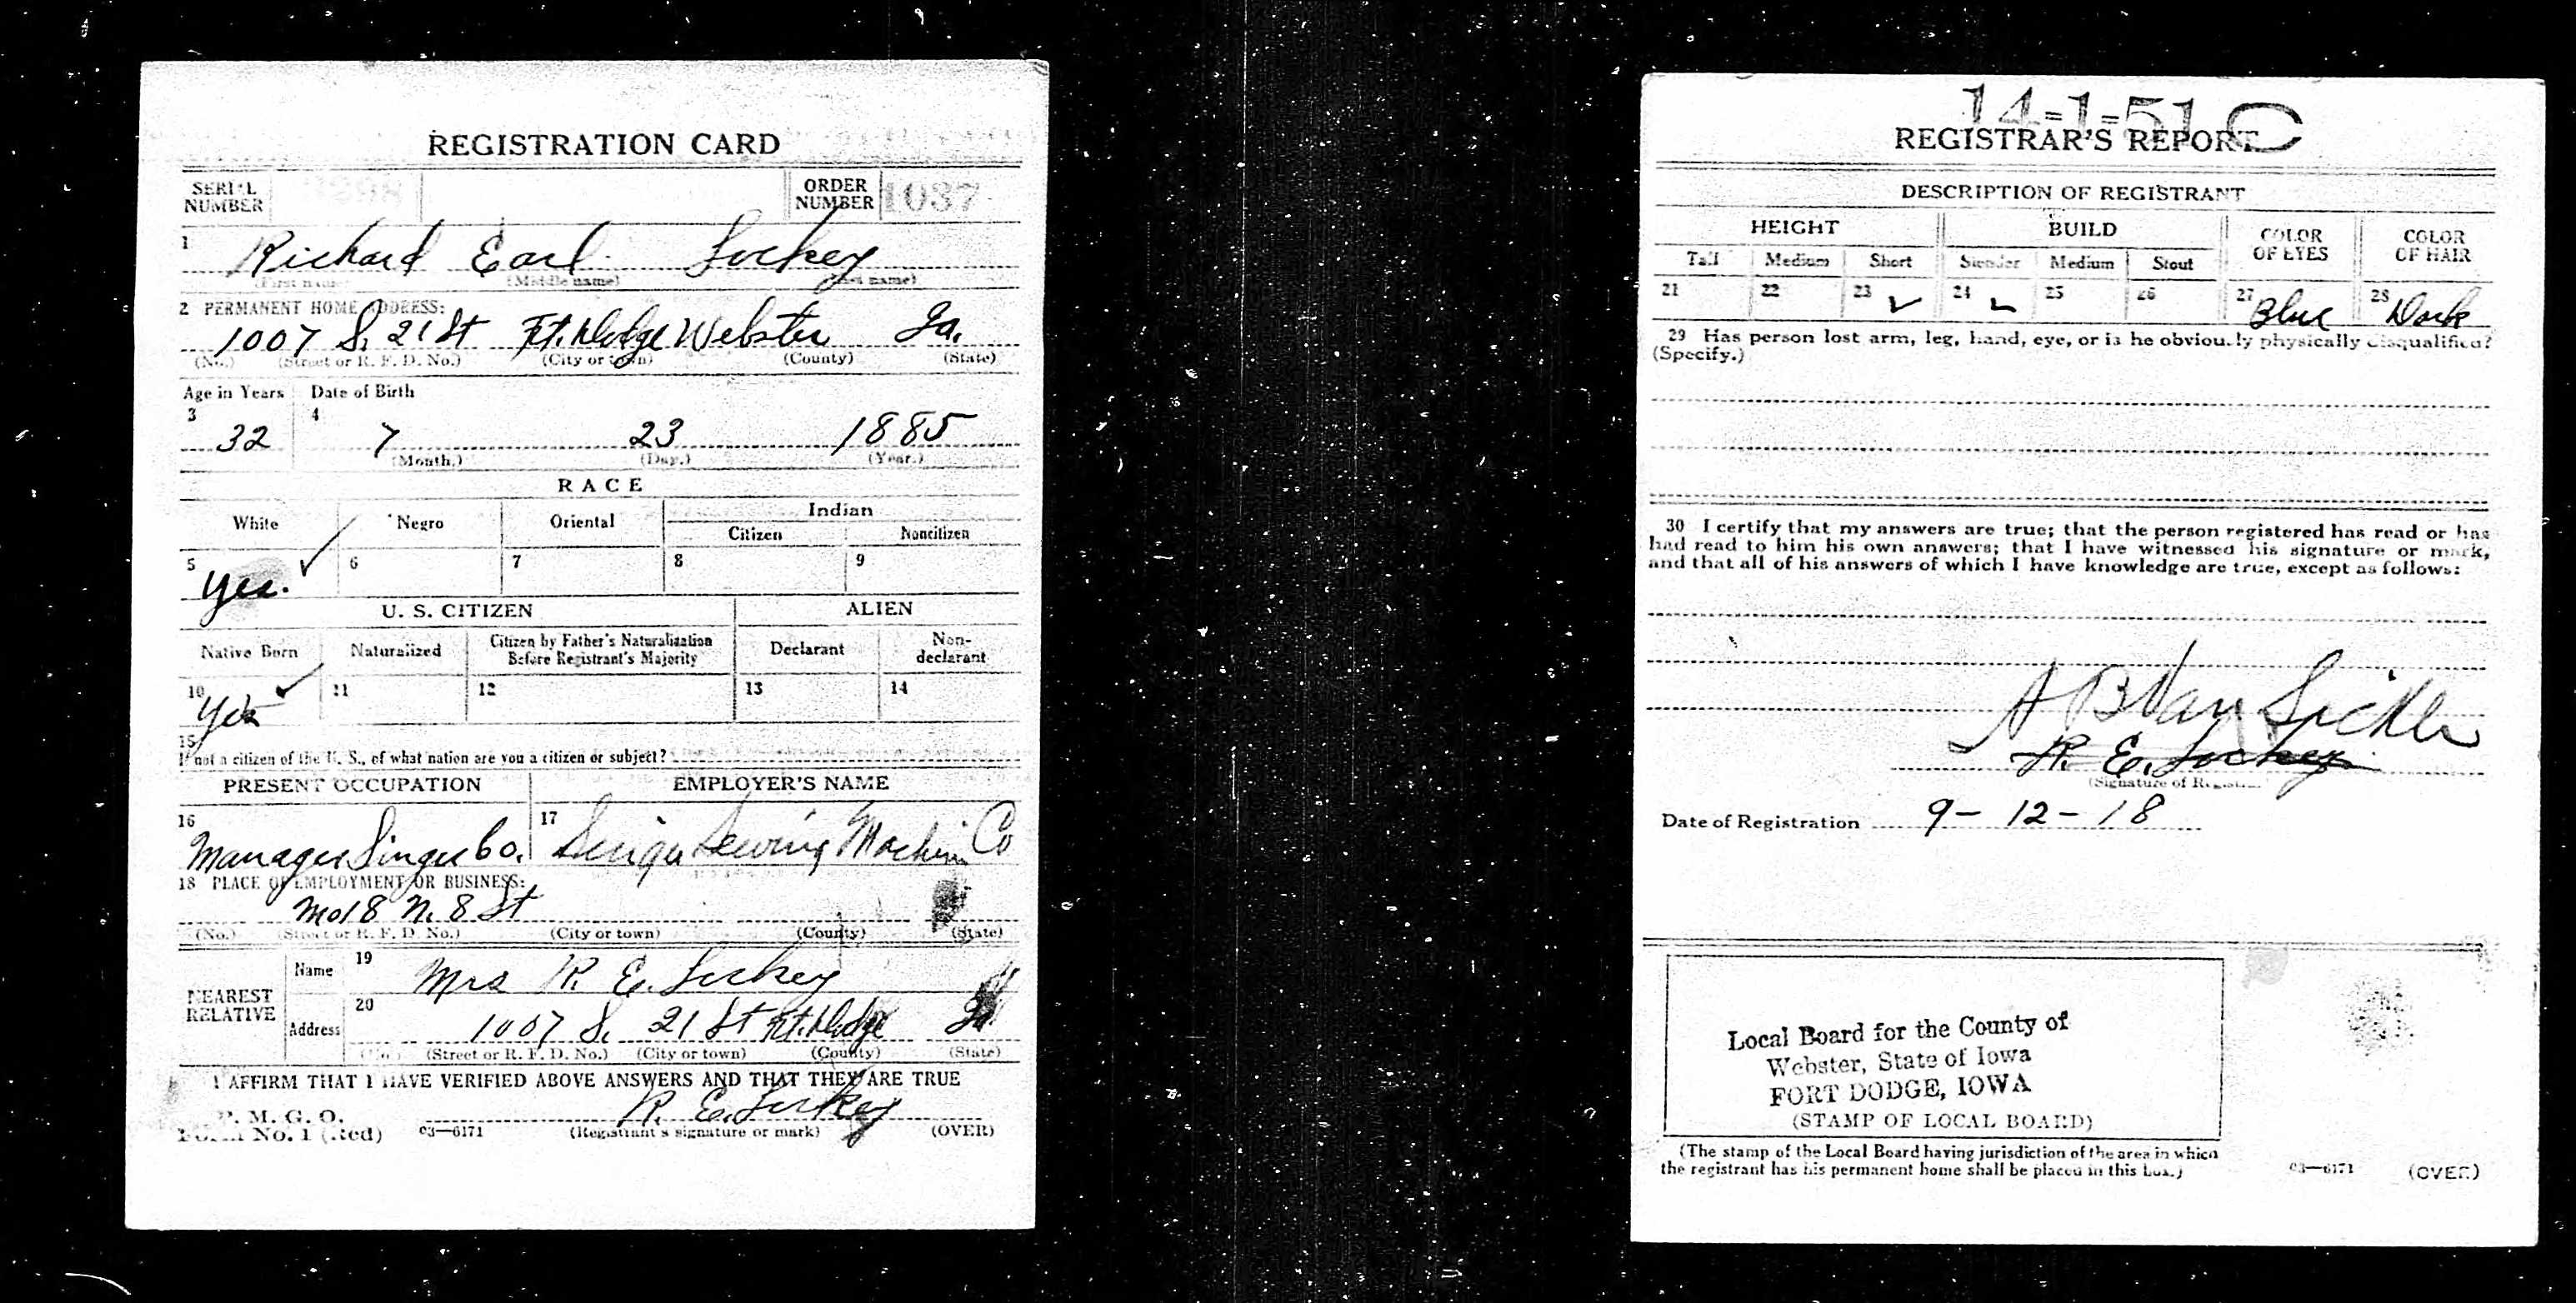 REGISTRATION CARD
SERIAL NUMBER
ORDER NUMBER 1037
1 Richard Earl Lockey
(First name) (Middle name) (Last name)
2 PERMANENT HOME ADDRESS:
1007 S. 21 St Ft. Dodge Webster Ia.
(No.) (Street or R. F. D. No.) (City or town) (County) (State)
Age in Years Date of Birth
3 32 4 7 23 1885
(Month.) (Day.) (Year.)
RACE
White Negro Oriental Indian
Citizen Noncitizen
5 Yes. ✓ 6 7 8 9
U. S. CITIZEN ALIEN
Native Born Naturalized Citizen by Father's Naturalization Before Registrant's Majority Declarant Non-declarant
10 Yes ✓ 11 12 13 14
15
If not a citizen of the U. S., of what nation are you a citizen or subject?
PRESENT OCCUPATION EMPLOYER'S NAME
16 Manager Singer Co. 17 Singer Sewing Machine Co
18 PLACE OF EMPLOYMENT OR BUSINESS:
N. 8 St
(No.) (Street or R. F. D. No.) (City or town) (County) (State)
NEAREST RELATIVE
Name 19 Mrs R. E. Lockey
Address 20 1007 S. 21 St Ft. Dodge Ia.
(No.) (Street or R. F. D. No.) (City or town) (County) (State)
I AFFIRM THAT I HAVE VERIFIED ABOVE ANSWERS AND THAT THEY ARE TRUE
P. M. G. O.
Form No. 1 (Red) 03—6171 R. E. Lockey
(Registrant's signature or mark) (OVER)
14-1-51 C
REGISTRAR'S REPORT
DESCRIPTION OF REGISTRANT
HEIGHT BUILD COLOR OF EYES COLOR OF HAIR
Tall Medium Short Slender Medium Stout
21 22 23 ✓ 24 ✓ 25 26 27 Blue 28 Dark
29 Has person lost arm, leg, hand, eye, or is he obviously physically disqualified?
(Specify.)
30 I certify that my answers are true; that the person registered has read or has
had read to him his own answers; that I have witnessed his signature or mark,
and that all of his answers of which I have knowledge are true, except as follows:
A B Van Sickle
R. E. Lockey
(Signature of Registrar)
Date of Registration 9-12-18
Local Board for the County of
Webster, State of Iowa
FORT DODGE, IOWA
(STAMP OF LOCAL BOARD)
(The stamp of the Local Board having jurisdiction of the area in which
the registrant has his permanent home shall be placed in this box.)
03—6171 (OVER)